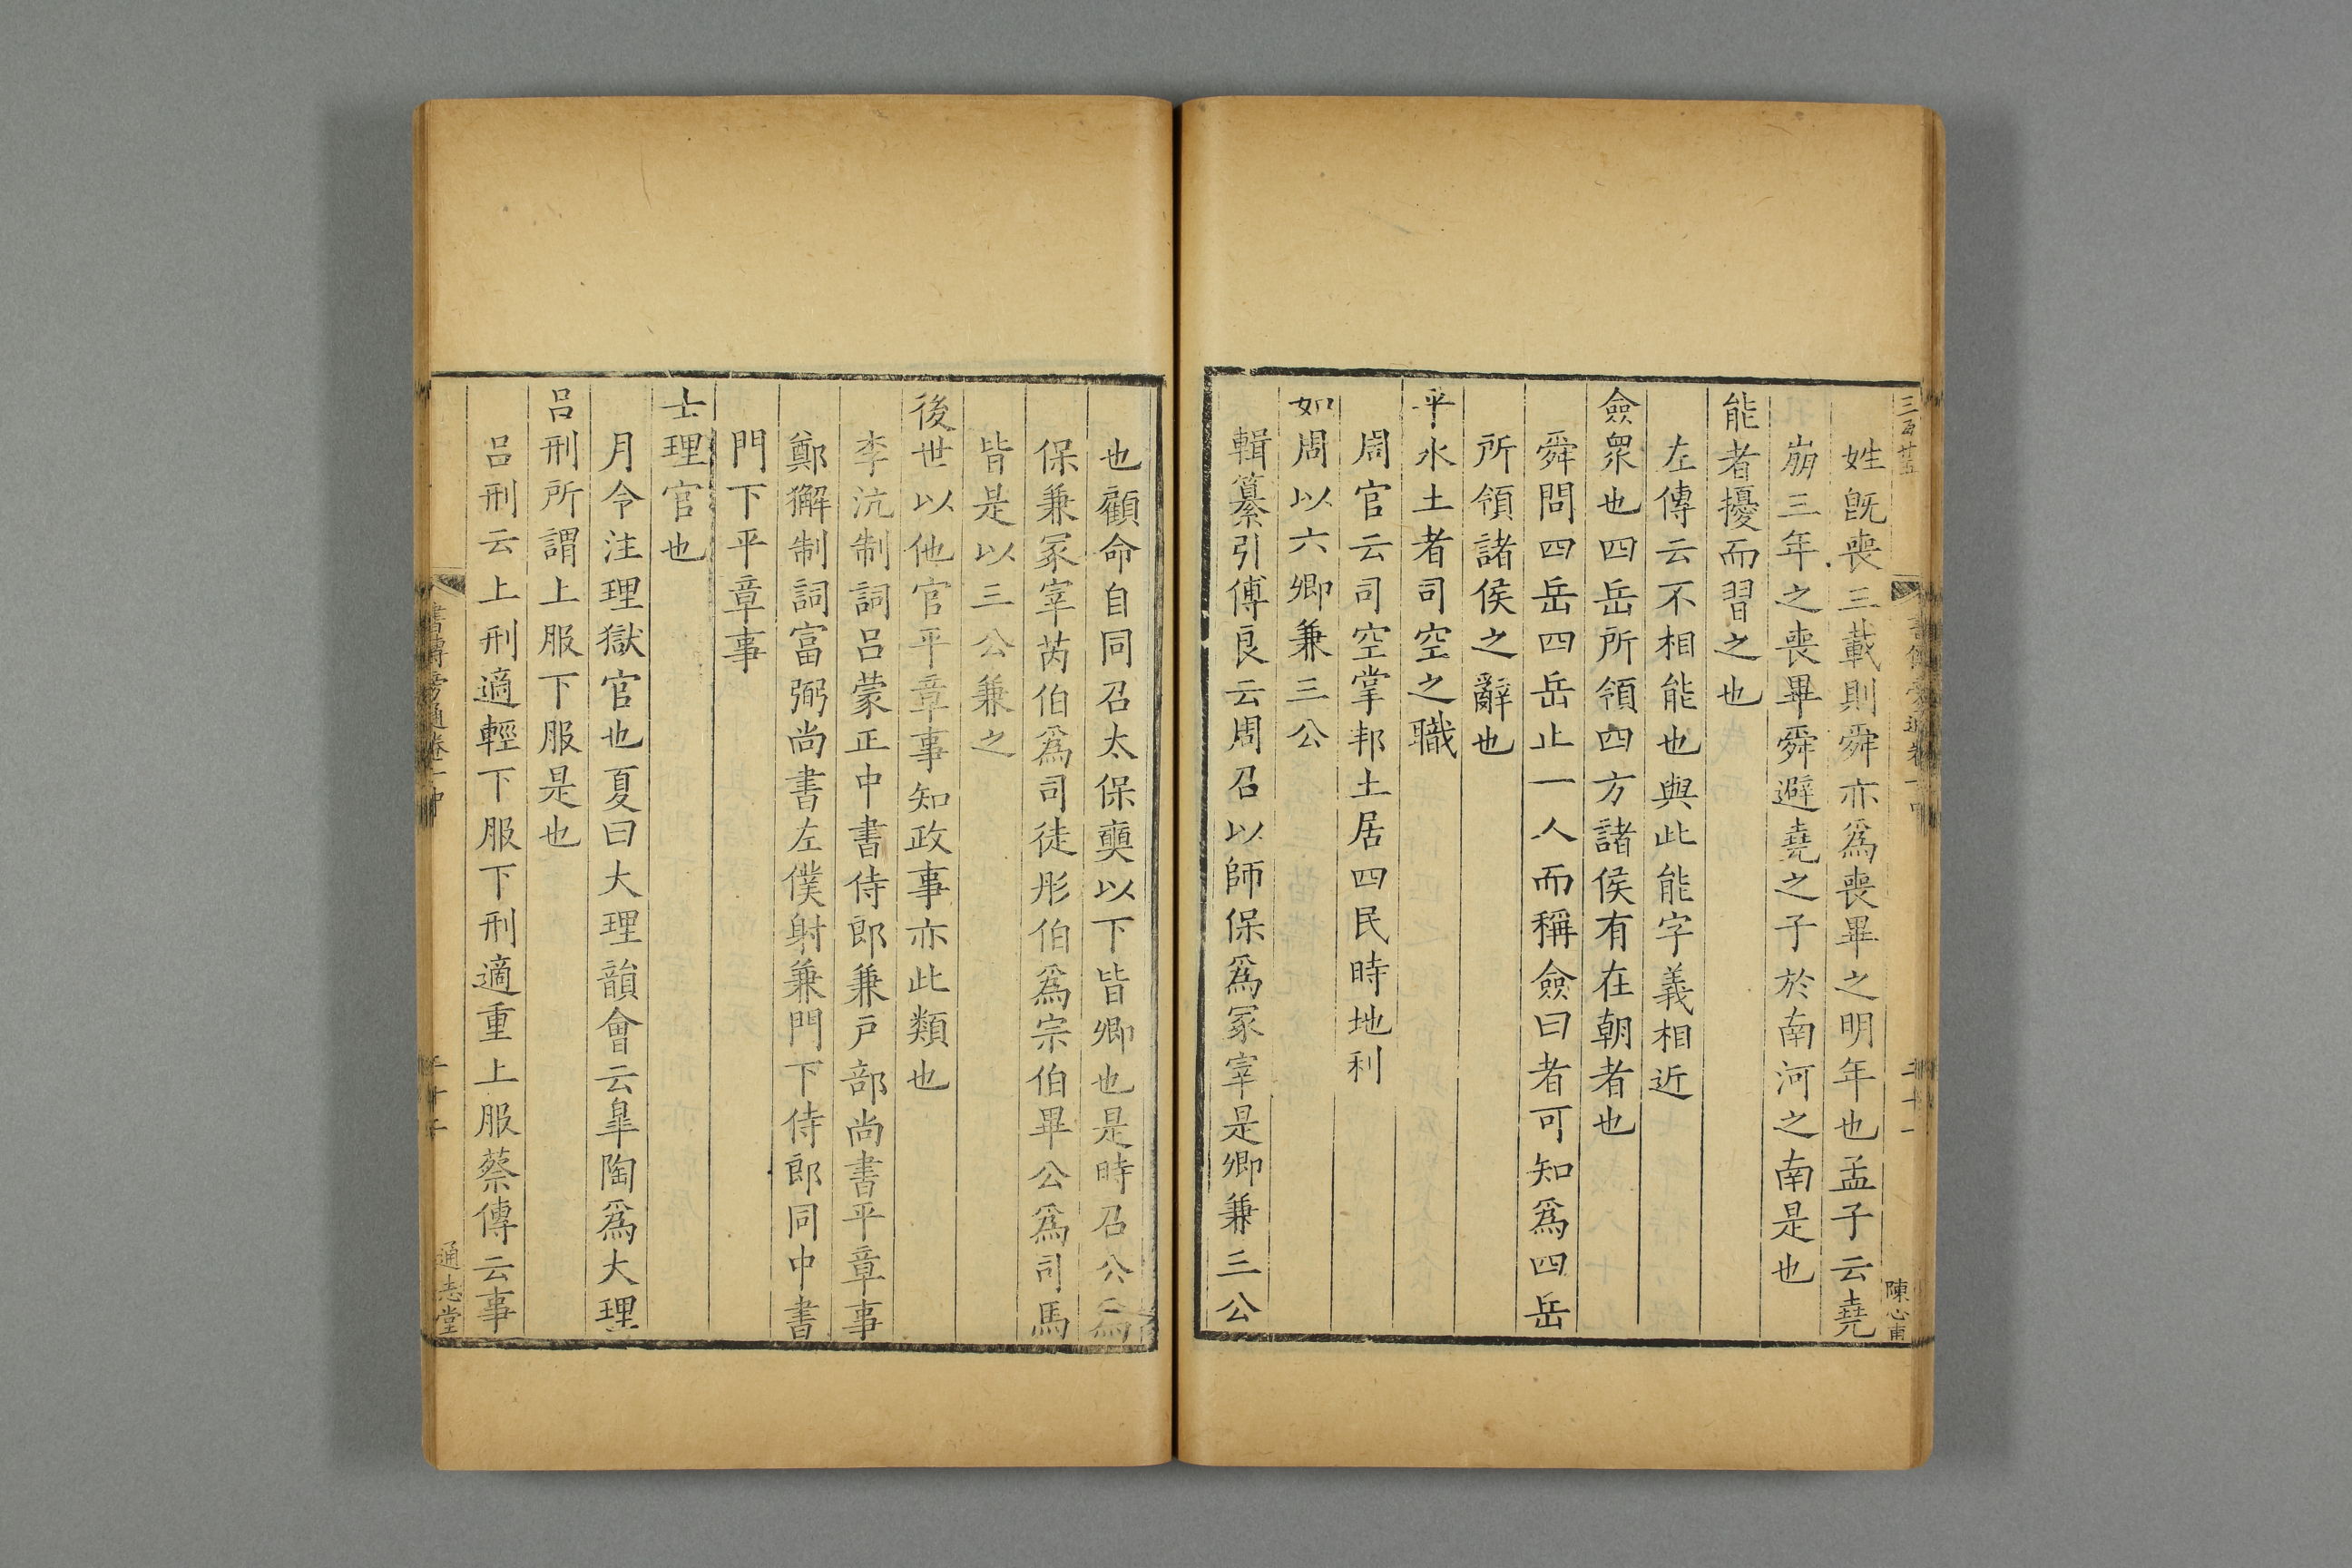 三百廿五
陳心甫
姓旣喪三載則舜亦爲喪畢之明年也孟子云堯
崩三年之喪畢舜避堯之子於南河之南是也
能者擾而習之也
左傳云不相能也與此能字義相近
僉衆也四岳所領四方諸侯有在朝者也
舜問四岳四岳止一人而稱僉曰者可知爲四岳
所領諸侯之辭也
平水土者司空之職
周官云司空掌邦土居四民時地利
如周以六卿兼三公
輯纂引傅良云周召以師保爲冢宰是卿兼三公
也顧命自同召太保奭以下皆卿也是時召公爲
保兼冢宰芮伯爲司徒彤伯爲宗伯畢公爲司馬
皆是以三公兼之
後世以他官平章事知政事亦此類也
李沆制詞呂蒙正中書侍郎兼戶部尚書平章事
鄭獬制詞富弼尚書左僕射兼門下侍郎同中書
門下平章事
士理官也
月令注理獄官也夏曰大理韻會云皐陶爲大理
呂刑所謂上服下服是也
呂刑云上刑適輕下服下刑適重上服蔡傳云事
書傳旁通卷一中
通志堂